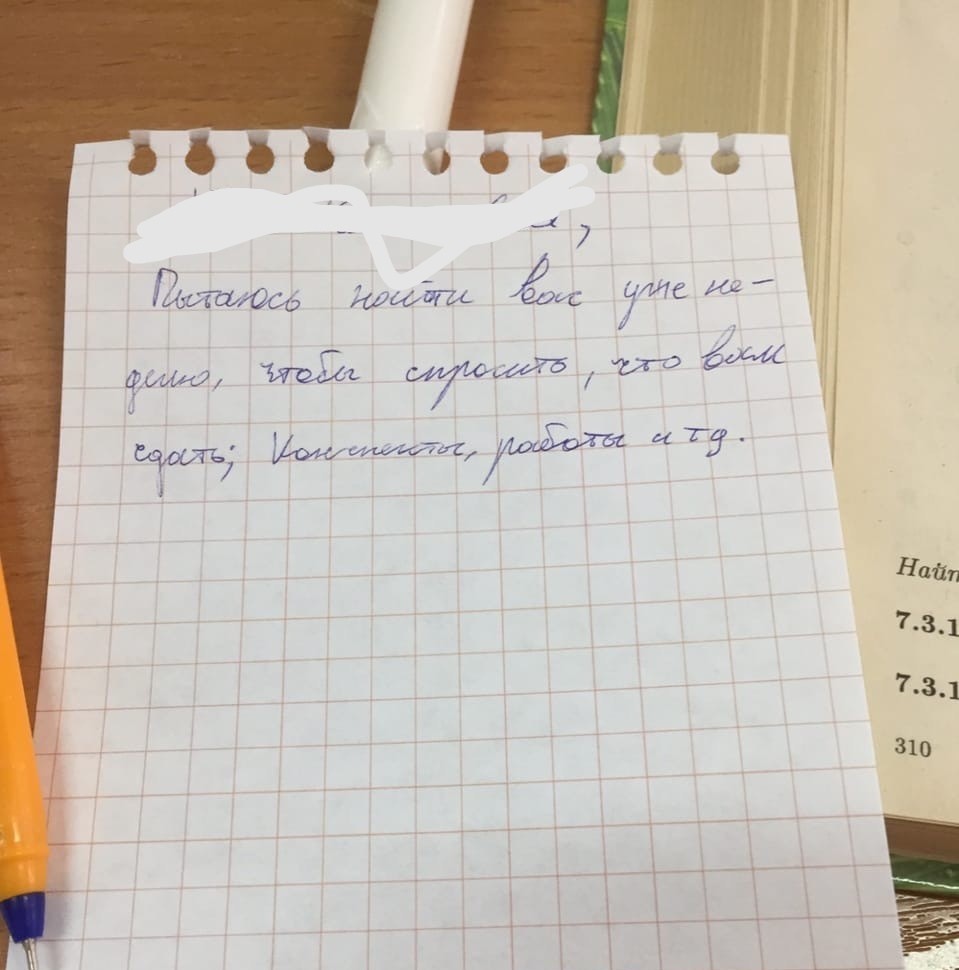 Пытаюсь найти вас уже не-
делю, чтобы спросить, что вам
сдать; Конспекты, работы и тд.
Найт
7.3.1
7.3.1
310